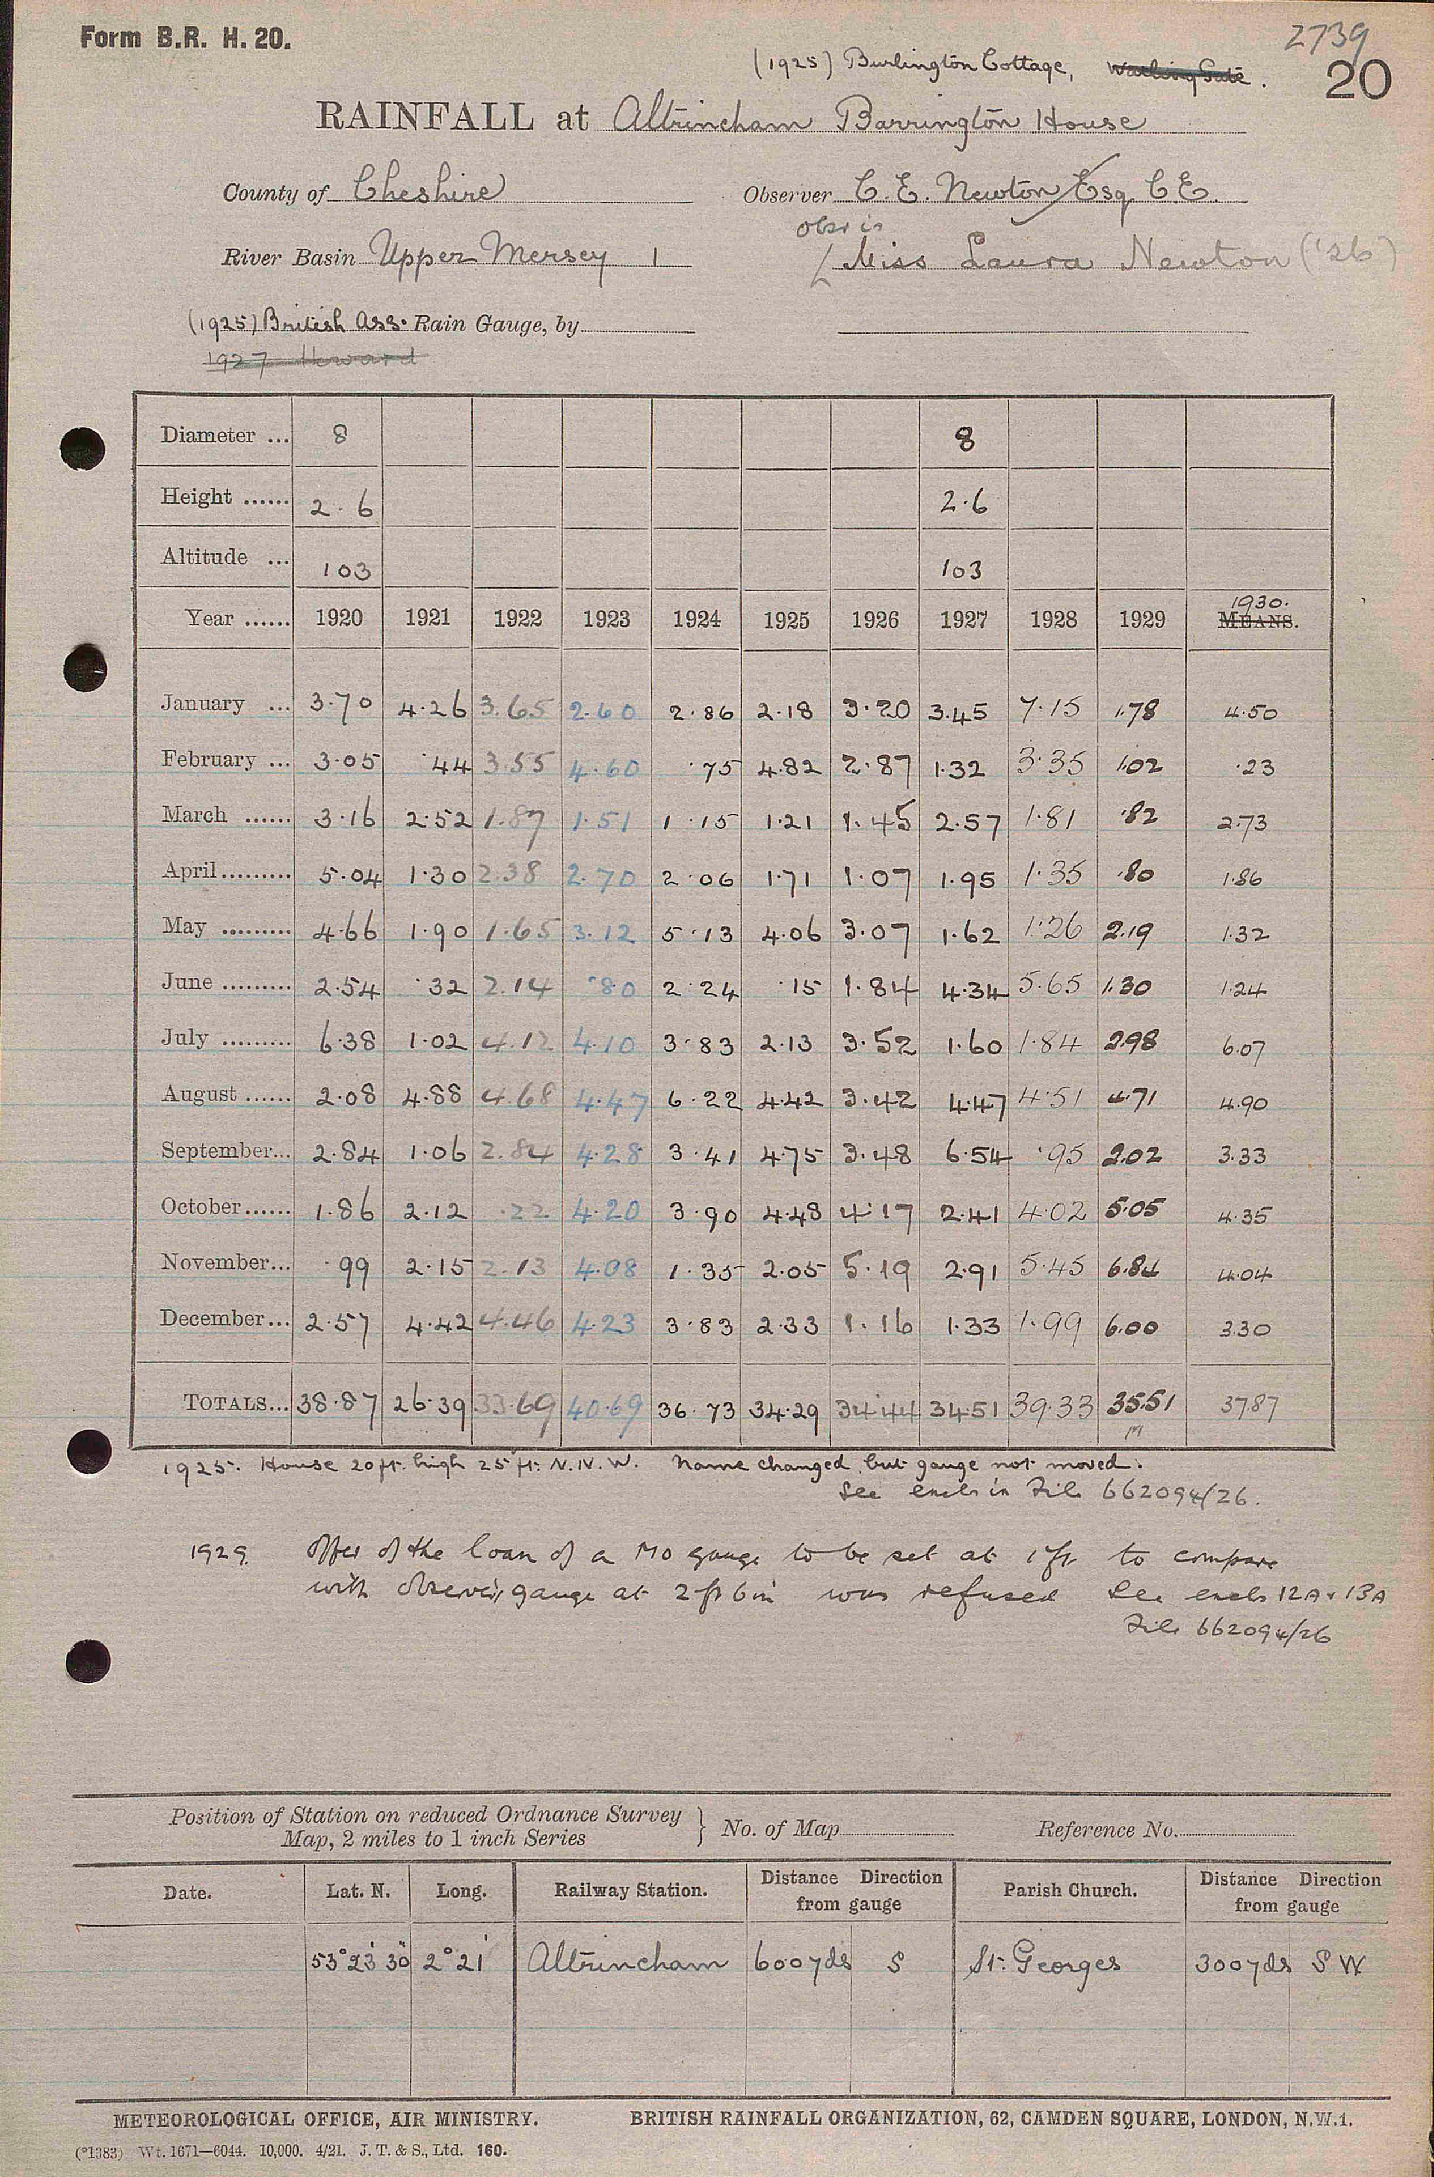 Form B.R. H. 20.
2739
(1925) Burlington Cottage,
20
RAINFALL at Altrincham Barrington House
County of Cheshire Observer C. E. Newton Esq C E.
obsr is
River Basin Upper Mersey 1 Miss Laura Newton ('26)
(1925) British Ass. Rain Gauge, by
1927 Howard
Diameter ... 8 8
Height ...... 2.6 2.6
Altitude ... 103 103
1930.
Year ...... 1920 1921 1922 1923 1924 1925 1926 1927 1928 1929 MEANS.
January ... 3.70 4.26 3.65 2.60 2.86 2.18 3.20 3.45 7.15 1.78 4.50
February ... 3.05 .44 3.55 4.60 .75 4.82 2.87 1.32 3.35 1.02 .23
March ...... 3.16 2.52 1.87 1.51 1.15 1.21 1.45 2.57 1.81 .82 2.73
April......... 5.04 1.30 2.38 2.70 2.06 1.71 1.07 1.95 1.35 .80 1.86
May ......... 4.66 1.90 1.65 3.12 5.13 4.06 3.07 1.62 1.26 2.19 1.32
June ......... 2.54 .32 2.14 .80 2.24 .15 1.84 4.34 5.65 1.30 1.24
July ......... 6.38 1.02 4.12 4.10 3.83 2.13 3.52 1.60 1.84 2.98 6.07
August ...... 2.08 4.88 4.68 4.47 6.22 4.42 3.42 4.47 4.51 4.71 4.90
September... 2.84 1.06 2.84 4.28 3.41 4.75 3.48 6.54 .95 2.02 3.33
October...... 1.86 2.12 .22 4.20 3.90 4.48 4.17 2.41 4.02 5.05 4.35
November... .99 2.15 2.13 4.08 1.35 2.05 5.19 2.91 5.45 6.84 4.04
December... 2.57 4.42 4.46 4.23 3.83 2.33 1.16 1.33 1.99 6.00 3.30
TOTALS... 38.87 26.39 33.69 40.69 36.73 34.29 34.44 34.51 39.33 35.51 37.87
1925. House 20ft. high 25 ft. N.N.W. Name changed, but gauge not moved.
See encls in File 662094/26.
1929. Offer of the loan of a MO gauge to be set at 1ft to compare
with observer's gauge at 2ft 6in was refused See encls 12A & 13A
File 662094/26
Position of Station on reduced Ordnance Survey
Map, 2 miles to 1 inch Series } No. of Map Reference No.
Date. Lat. N. Long. Railway Station. Distance Direction from gauge Parish Church. Distance Direction from gauge
53° 23' 30" 2° 21' Altrincham 600yds S St. Georges 300yds S W
METEOROLOGICAL OFFICE, AIR MINISTRY. BRITISH RAINFALL ORGANIZATION, 62, CAMDEN SQUARE, LONDON, N.W.1.
(*1383) Wt. 1671—6044. 10,000. 4/21. J. T. & S., Ltd. 160.